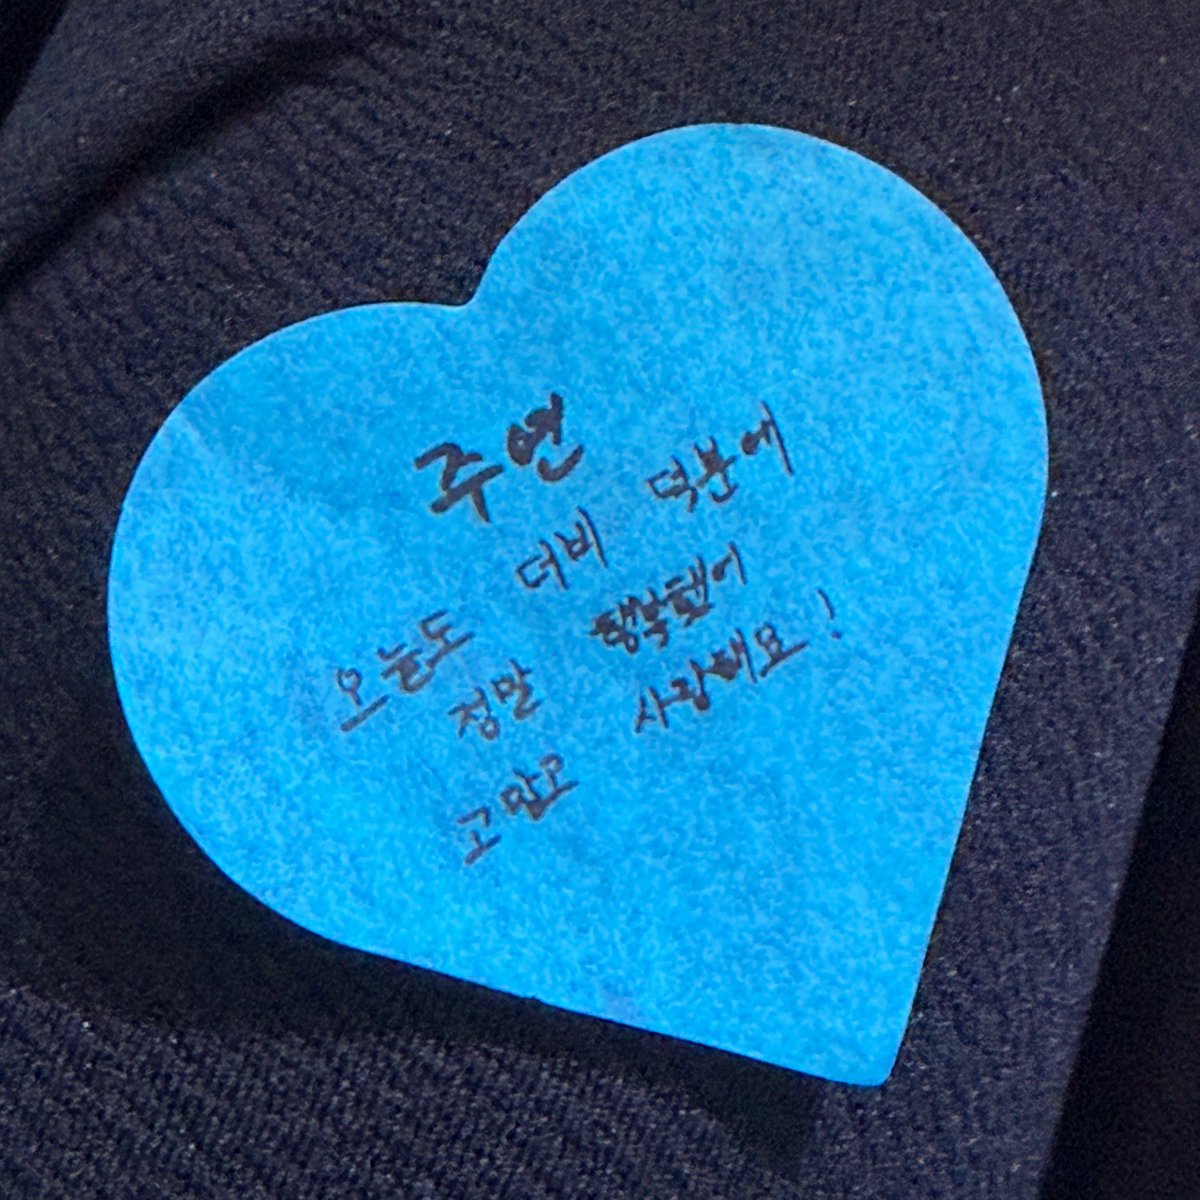 주연
오늘도 더비 덕분에
정말 행복했어
고마오 사랑해요!